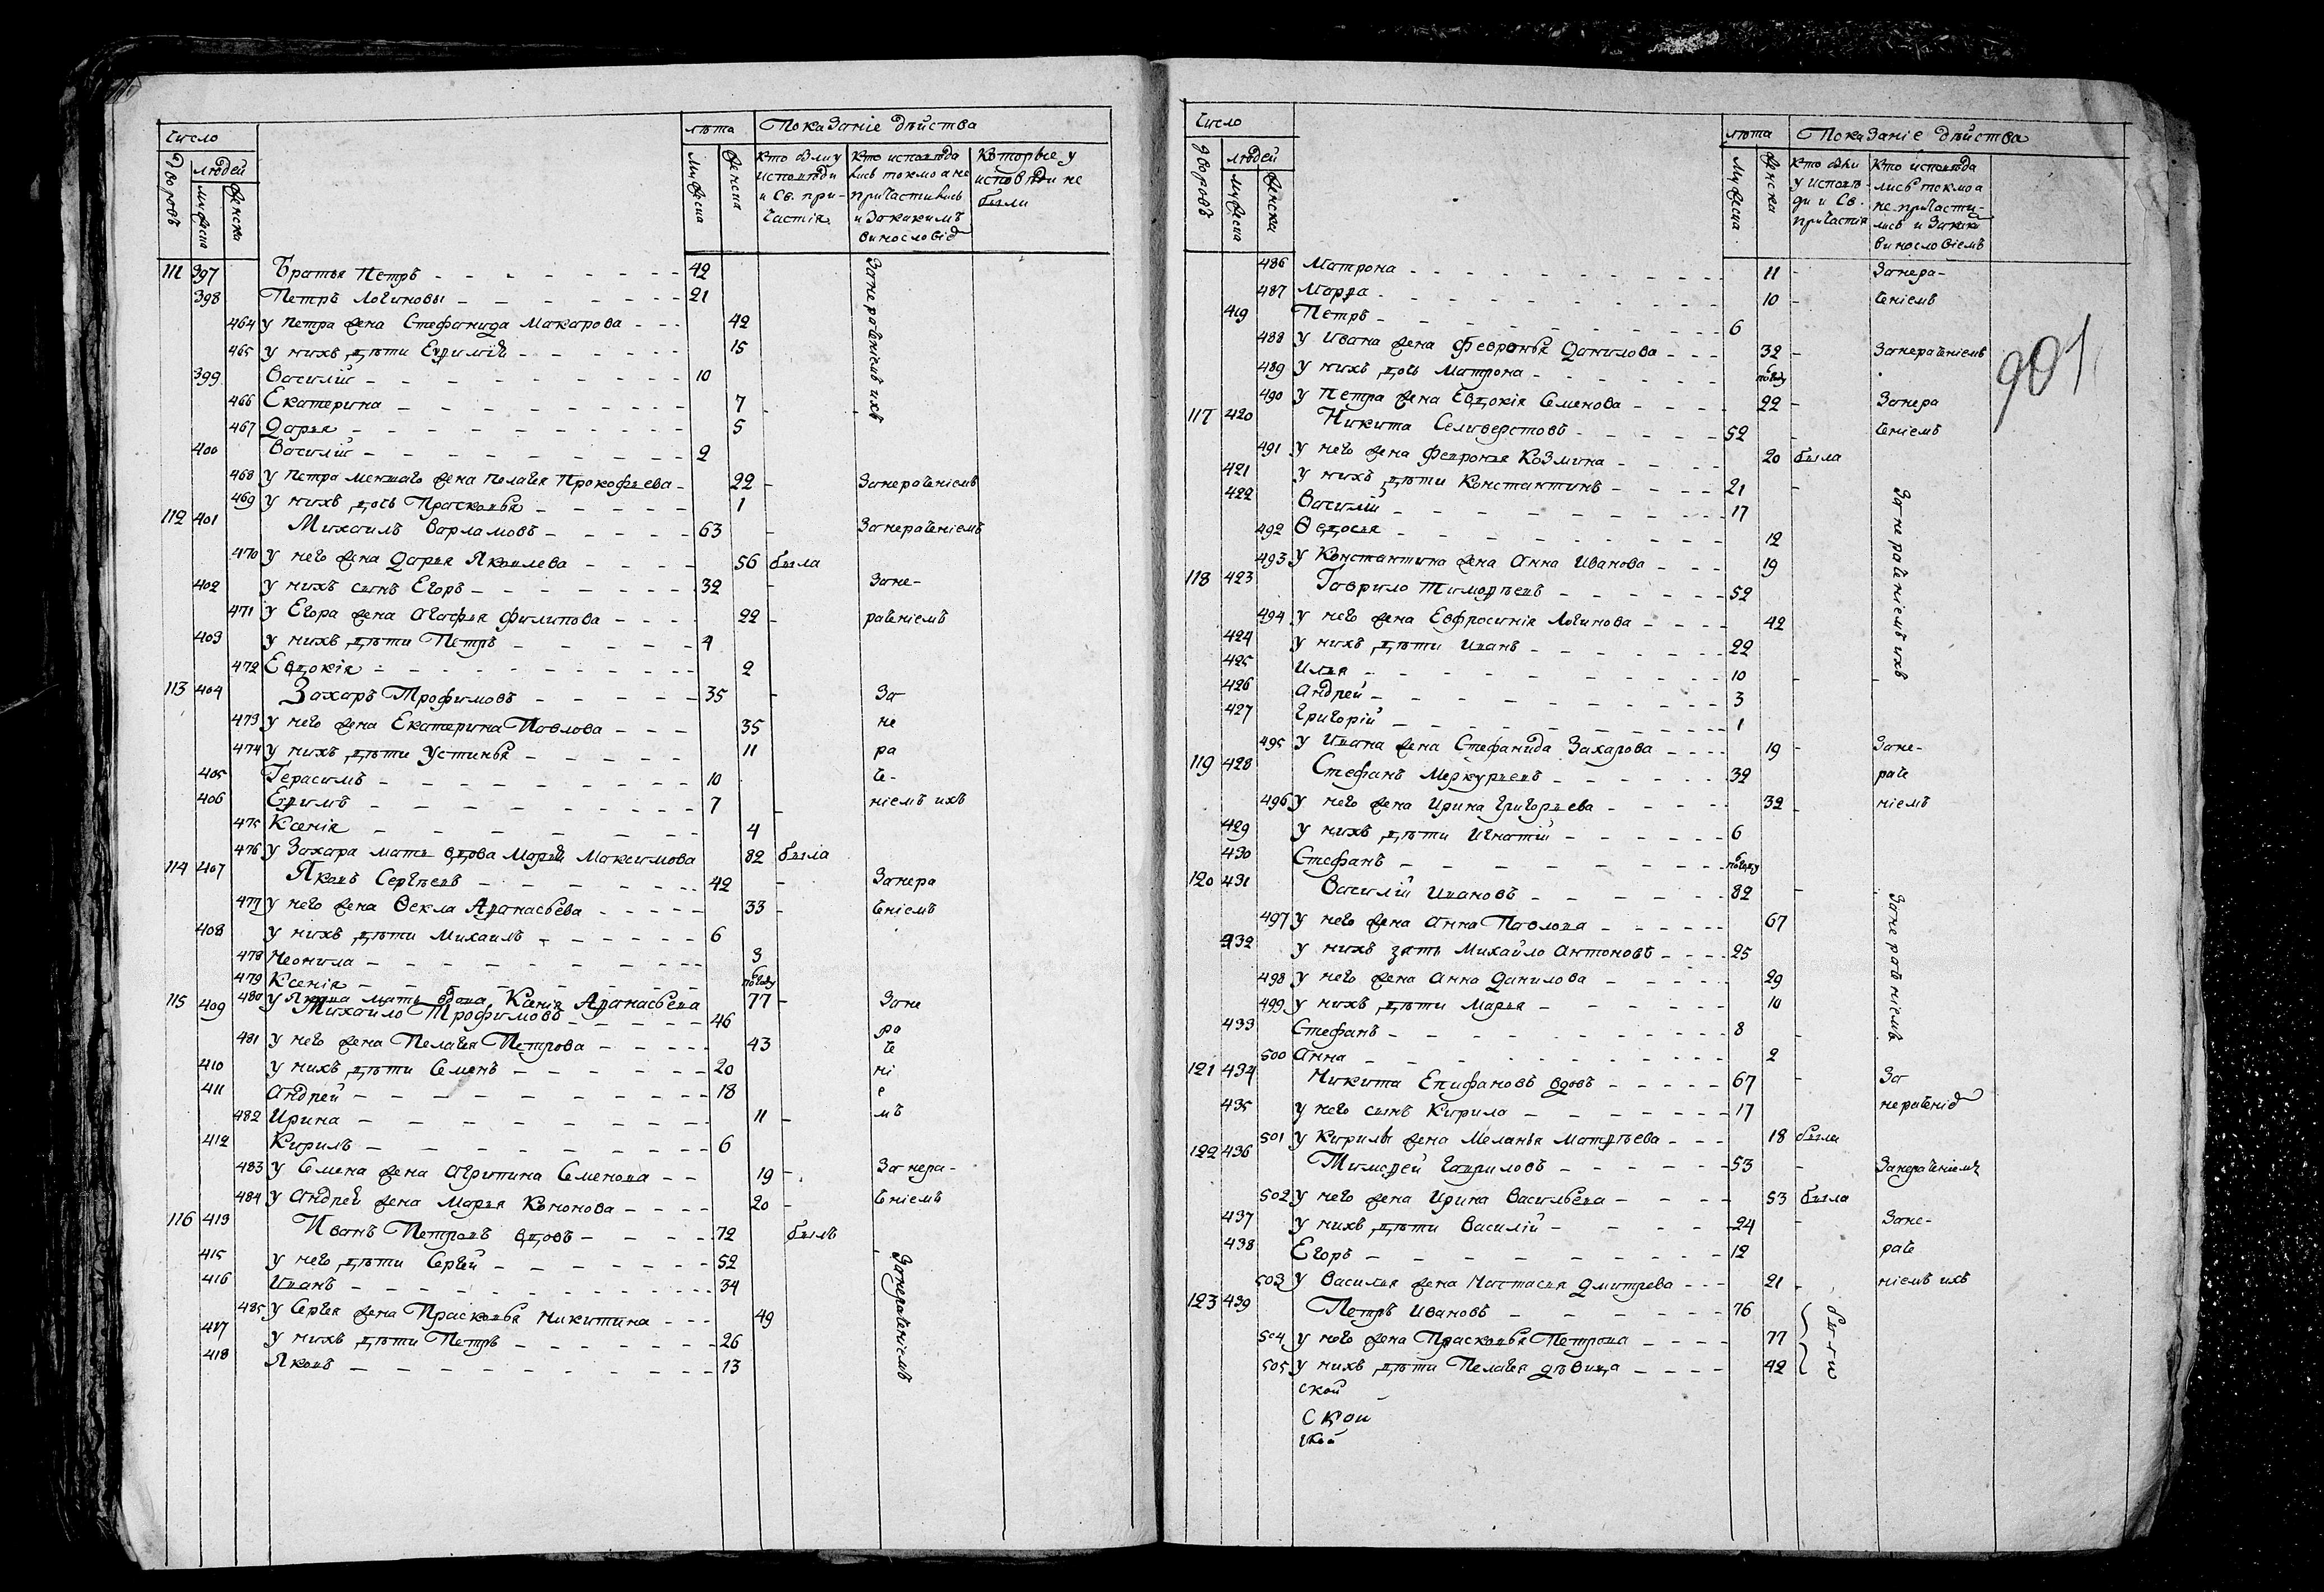 Число
лѣта Показаніе дѣйства
дворовъ людей мужеска женска мужеска женска
Кто были у исповѣди и Св. причастія
Кто исповѣдались токмо а не причастились и за какимъ винословіемъ
Которые у исповѣди не были
111 397 Братья Петръ 42 За нераченіемъ ихъ
398 Петръ Логиновы 21
464 у Петра жена Стефанида Макарова 42
465 у нихъ дѣти Ефимія 15
399 Василій 10
466 Екатерина 7
467 Дарья 5
400 Василій 2
468 у Петра меншаго жена Пелагея Прокофьева 22 За нераченіемъ
469 у нихъ дочь Прасковья 1
112 401 Михаилъ Варламовъ 63 За нераченіемъ
470 у него жена Дарья Яковлева 56 была
402 у нихъ сынъ Егоръ 32 За не-
471 у Егора жена Агафья Филипова 22 раченіемъ
403 у нихъ дѣти Петръ 4
472 Евдокія 2
113 404 Захаръ Трофимовъ 35 За
473 у него жена Екатерина Павлова 35 не
474 у нихъ дѣти Устинья 11 ра
405 Герасимъ 10 че-
406 Ефимъ 7 ніемъ ихъ
475 Ксенія 4
476 у Захара мать вдова Марья Максимова 82 была
114 407 Яковъ Сергѣевъ 42 За нера
477 у него жена Ѳекла Афанасьева 33 ченіемъ
408 у нихъ дѣти Михаилъ 6
478 Неонила 3
479 Ксенія полгоду
480 у Якова мать вдова Ксенія Афанасьева 77 За не
115 409 Михайло Трофимовъ 46 ра
481 у него жена Пелагея Петрова 43 че
410 у нихъ дѣти Семенъ 20 ні
411 Андрей 18 е
482 Ирина 11 мъ
412 Кирилъ 6
483 у Семена жена Агрипина Семенова 19 За нера-
484 у Андрея жена Марья Кононова 20 ченіемъ
116 413 Иванъ Петровъ вдовъ 72 былъ
415 у него дѣти Сергей 52 За нераченіемъ
416 Иванъ 34
485 у Сергея жена Прасковья Никитина 49
417 у нихъ дѣти Петръ 26
418 Яковъ 13
Число
лѣта Показаніе дѣйства
дворовъ людей мужеска женска мужеска женска
Кто были у исповѣди и Св. причастія
Кто исповѣдались токмо а не причастились и за каки винословіемъ
486 Матрона 11 За нера-
487 Марфа 10 ченіемъ
419 Петръ 6
488 у Ивана жена Февронья Данилова 32 За нераченіемъ
901
489 у нихъ дочь Матрона полгоду
490 у Петра жена Евдокія Семенова 22 За нера
117 420 Никита Селиверстовъ 52 ченіемъ
491 у него жена Февронья Козмина 20 была
421 у нихъ дѣти Константинъ 21 За нераченіемъ ихъ
422 Василій 17
492 Ѳедосья 12
493 у Константина жена Анна Иванова 19
118 423 Гаврило Тимофѣевъ 52
494 у него жена Евфросинія Логинова 42
424 у нихъ дѣти Иванъ 22
425 Илья 10
426 Андрей 3
427 Григорій 1
495 у Ивана жена Стефанида Захарова 19 За не-
119 428 Стефанъ Меркурьевъ 32 раче
496 у него жена Ирина Григорьева 32 ніемъ
429 у нихъ дѣти Игнатій 6
430 Стефанъ полгоду
120 431 Василій Ивановъ 82 За нераченіемъ
497 у него жена Анна Павлова 67
432 у нихъ зять Михайло Антоновъ 25
498 у него жена Анна Данилова 29
499 у нихъ дѣти Марья 10
433 Стефанъ 8
500 Анна 2
121 434 Никита Епифановъ вдовъ 67 За
435 у него сынъ Кирила 17 нераченіе
501 у Кирилы жена Меланья Матфѣева 18 была
122 436 Тимофей Гавриловъ 53 За нераченіемъ
502 у него жена Ирина Васильева 53 была
437 у нихъ дѣти Василій 24 За не-
438 Егоръ 12 раче
503 у Василья жена Настасья Дмитрева 21 ніемъ ихъ
123 439 Петръ Ивановъ 76 были
504 у него жена Прасковья Петрова 77
505 у нихъ дѣти Пелагея дѣвица 42
ской
ской
ской